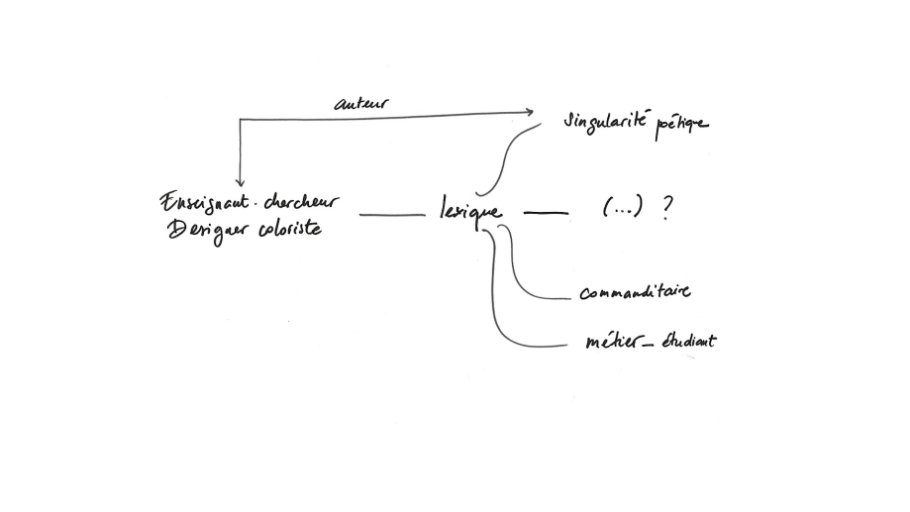 auteur
singularité poétique
Enseignant-chercheur
Designer coloriste
lexique
(...) ?
commanditaire
métier_étudiant